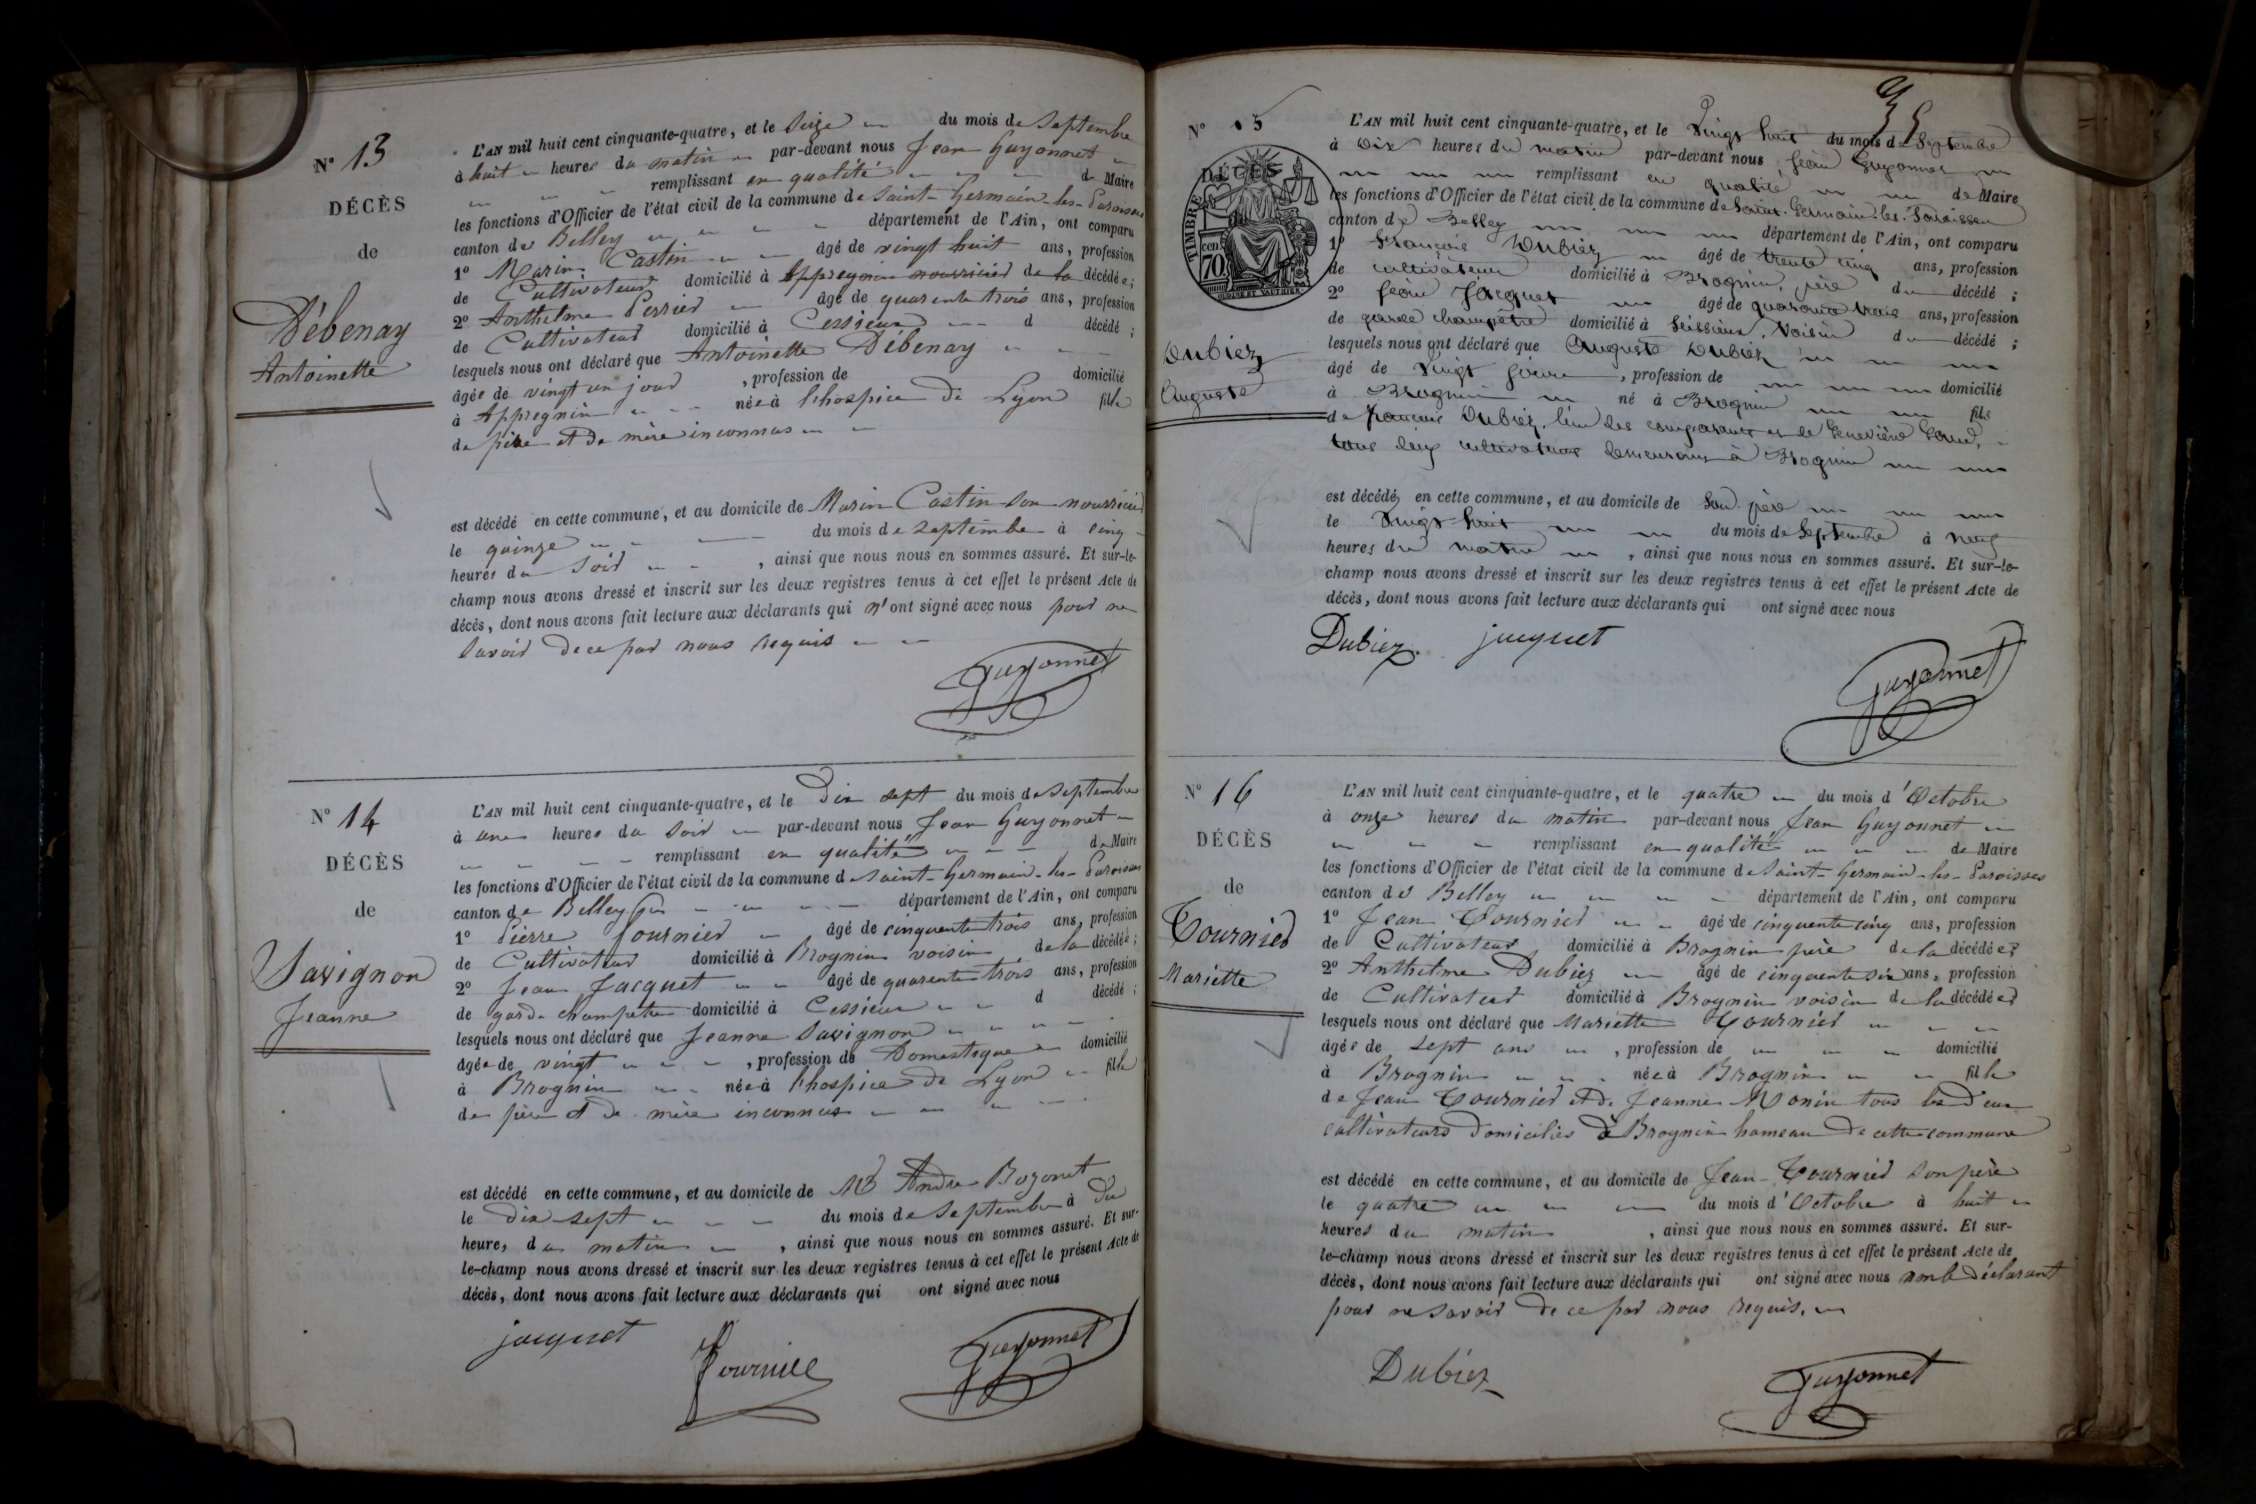 N° 13
DÉCÈS
de
Débenay
Antoinette
L'AN mil huit cent cinquante-quatre, et le Seize du mois de Septembre
à huit heures du matin par-devant nous Jean Guyonnet
remplissant en qualité de Maire
les fonctions d'Officier de l'état civil de la commune de Saint-Germain-les-Paroisses
canton de Belley département de l'Ain, ont comparu
1° Marin Castin âgé de vingt huit ans, profession
de Cultivateur domicilié à Appregnin nourricier de la décédée;
2° Anthelme Perrier âgé de quarente trois ans, profession
de Cultivateur domicilié à Cessieux d décédé ;
lesquels nous ont déclaré que Antoinette Débenay
âgée de vingt un jour , profession de domicilié
à Appregnin née à l'hospice de Lyon fille
de père et de mère inconnus
est décédé en cette commune, et au domicile de Marin Castin son nourricier
le quinze du mois de Septembre à cinq
heures du soir , ainsi que nous nous en sommes assuré. Et sur-le-
champ nous avons dressé et inscrit sur les deux registres tenus à cet effet le présent Acte de
décès, dont nous avons fait lecture aux déclarants qui n'ont signé avec nous pour ne
savoir de ce par nous requis
Guyonnet
N° 14
DÉCÈS
de
Savignon
Jeanne
L'AN mil huit cent cinquante-quatre, et le Dix sept du mois de Septembre
à une heures du soir par-devant nous Jean Guyonnet
remplissant en qualité de Maire
les fonctions d'Officier de l'état civil de la commune de Saint-Germain-les-Paroisses
canton de Belley département de l'Ain, ont comparu
1° Pierre fournier âgé de cinquente trois ans, profession
de Cultivateur domicilié à Brognin voisin de la décédée;
2° Jean Jacquet âgé de quarente trois ans, profession
de garde champetre domicilié à Cessieux d décédé ;
lesquels nous ont déclaré que Jeanne Savignon
âgée de vingt , profession de Domestique domicilié
à Brognin née à l'hospice de Lyon fille
de père et de mère inconnus
est décédé en cette commune, et au domicile de Mr Andre Bozonet
le Dix-sept du mois de Septembre à Dix
heures du matin , ainsi que nous nous en sommes assuré. Et sur-
le-champ nous avons dressé et inscrit sur les deux registres tenus à cet effet le présent Acte de
décès, dont nous avons fait lecture aux déclarants qui ont signé avec nous
jacquet
Guyonnet
35
N° 15
DÉCÈS
TIMBRE
70 cen.
Dubiez
Auguste
L'AN mil huit cent cinquante-quatre, et le Vingt huit du mois de Septembre
à Dix heures du matin par-devant nous Jean Guyonnet
remplissant en qualité de Maire
les fonctions d'Officier de l'état civil de la commune de Saint-Germain-les-Paroisses
canton de Belley département de l'Ain, ont comparu
1° François Dubiez âgé de trente cinq ans, profession
de cultivateur domicilié à Brognin, père du décédé ;
2° Jean Jacquet âgé de quarante trois ans, profession
de garde champêtre domicilié à Seissieux, voisin du décédé ;
lesquels nous ont déclaré que Auguste Dubiez
âgé de Vingt jours , profession de domicilié
à Brognin né à Brognin fils
de françois Dubiez, l'un des comparants et de Geneviève
tous deux cultivateurs demeurant à Brognin
est décédé, en cette commune, et au domicile de son père
le Vingt-huit du mois de Septembre à neuf
heures du matin , ainsi que nous nous en sommes assuré. Et sur-le-
champ nous avons dressé et inscrit sur les deux registres tenus à cet effet le présent Acte de
décès, dont nous avons fait lecture aux déclarants qui ont signé avec nous
Dubiez. jacquet
Guyonnet
N° 16
DÉCÈS
de
Tournier
Mariette
L'AN mil huit cent cinquante-quatre, et le quatre du mois d'Octobre
à onze heures du matin par-devant nous Jean Guyonnet
remplissant en qualité de Maire
les fonctions d'Officier de l'état civil de la commune de Saint-Germain-les-Paroisses
canton de Belley département de l'Ain, ont comparu
1° Jean Tournier âgé de cinquente cinq ans, profession
de Cultivateur domicilié à Brognin père de la décédée;
2° Anthelme Dubiez âgé de cinquente six ans, profession
de Cultivateur domicilié à Brognin voisin de la décédée;
lesquels nous ont déclaré que Mariette Tournier
âgée de sept ans , profession de domicilié
à Brognin née à Brognin fille
de Jean Tournier et de Jeanne Monin tous les deux
cultivateurs domiciliés à Brognin hameau de cette commune
est décédé en cette commune, et au domicile de Jean Tournier son père
le quatre du mois d'Octobre à huit
heures du matin , ainsi que nous nous en sommes assuré. Et sur-
le-champ nous avons dressé et inscrit sur les deux registres tenus à cet effet le présent Acte de
décès, dont nous avons fait lecture aux déclarants qui ont signé avec nous non le déclarant
pour ne savoir de ce par nous requis.
Dubiez
Guyonnet